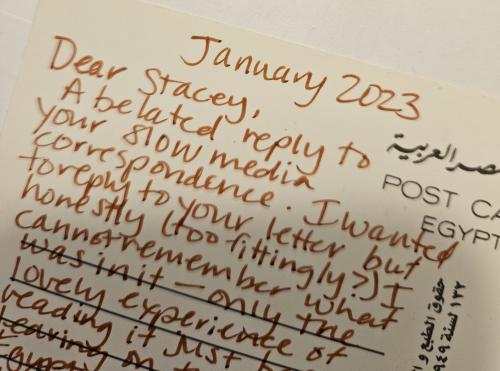 January 2023
Dear Stacey,
A belated reply to
your slow media
correspondence. I wanted
to reply to your letter but
honestly (too fittingly?) I
cannot remember what
was in it — only the
lovely experience of
reading it
Egypt
مصر العربية
POST CA
EGYPT
حقوق الطبع و
١٣٢ لسنة ٩٤٩